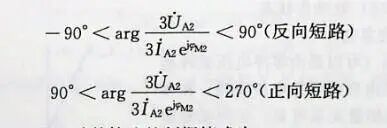 －90°＜arg 3U̇A2 / 3İA2e^jφM2 ＜90°(反向短路)
90°＜arg 3U̇A2 / 3İA2e^jφM2 ＜270°(正向短路)